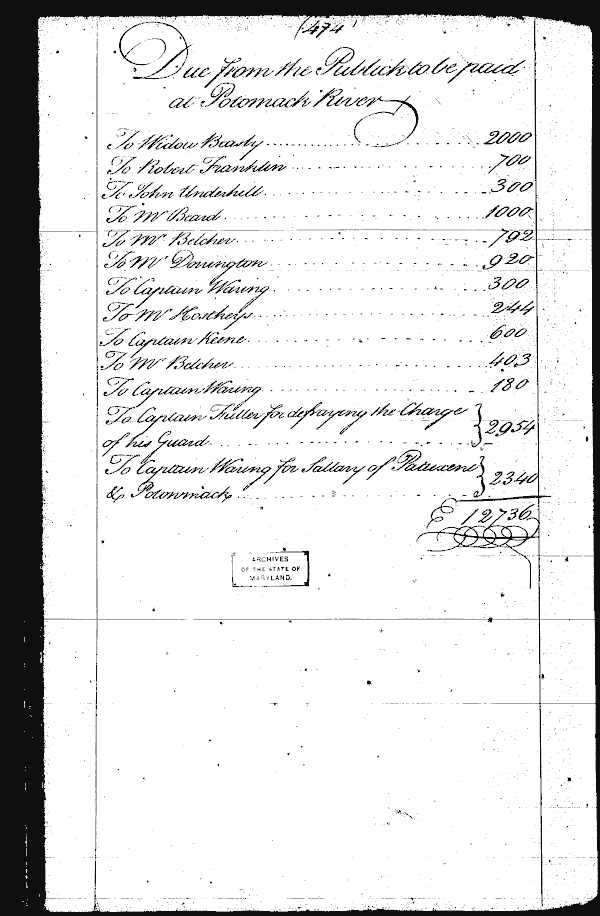 (474)
Due from the Publick to be paid
at Potomack River
To Widow Beasly 2000
To Robert Franklin 700
To John Underhill 300
To Mr Beard 1000
To Mr Belcher 792
To Mr Dorrington 920
To Captain Waring 300
To Mr Hoskeys 244
To Captain Keene 600
To Mr Belcher 403
To Captain Waring 180
To Captain Fuller for defraying the Charge
of his Guard 2954
To Captain Waring for Sallary of Patuxent
& Potonmack 2340
12736
ARCHIVES
OF THE STATE OF
MARYLAND.